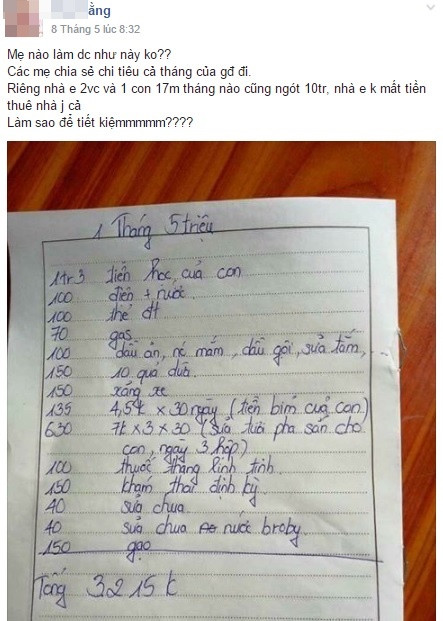 ằng
8 Tháng 5 lúc 8:32
Mẹ nào làm dc như này ko??
Các mẹ chia sẻ chi tiêu cả tháng của gđ đi.
Riêng nhà e 2vc và 1 con 17m tháng nào cũng ngót 10tr, nhà e k mất tiền
thuê nhà j cả
Làm sao để tiết kiệmmmmm????
1 Tháng 5 triệu
1tr3 tiền học của con
100 điện + nước.
100 thẻ đt
70 gas
100 dầu ăn, nc mắm, dầu gội, sữa tắm, ...
150 10 quả dừa.
150 xăng xe
135 4,5k x 30 ngày (tiền bỉm cuả con)
630 7k x 3 x 30 (sữa tươi pha sẵn cho
con, ngày 3 hộp)
100 thuốc thang linh tinh.
150 khám thai định kỳ.
40 sữa chua
40 sữa chua nước broby.
150 gạo
Tổng 3215k